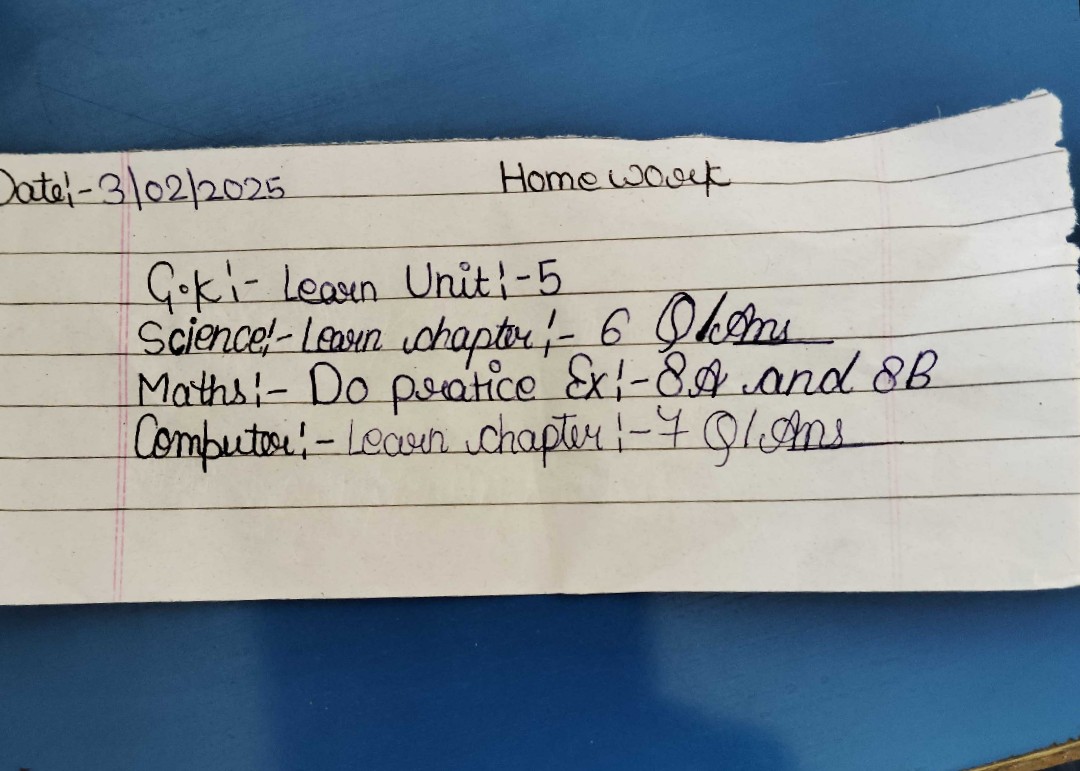 Date:-3/02/2025 Homework
G.K:- Learn Unit:-5
Science:-Learn chapter:- 6 Q/Ans
Maths:- Do pratice Ex:-8A and 8B
Computer:-Learn chapter:-7 Q/Ans